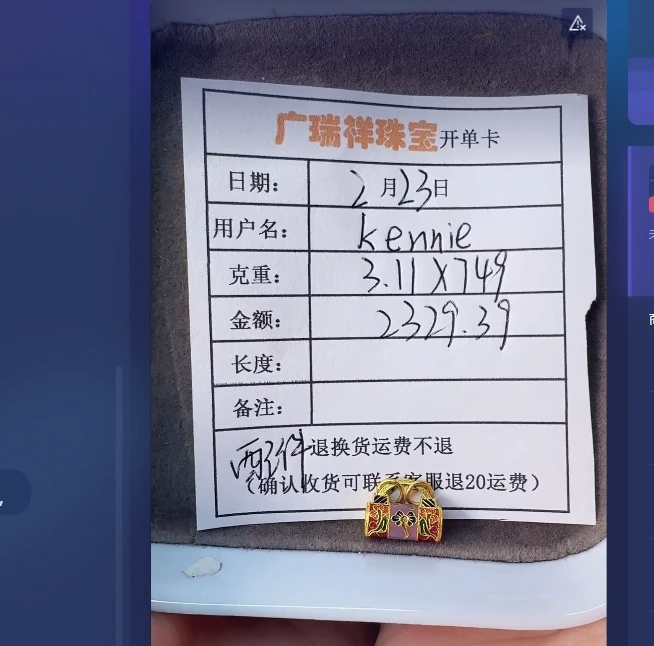 广瑞祥珠宝开单卡
日期： 2月23日
用户名： kennie
克重： 3.11 X 749
金额： 2329.39
长度：
备注：
配件 退换货运费不退
（确认收货可联系客服退20运费）